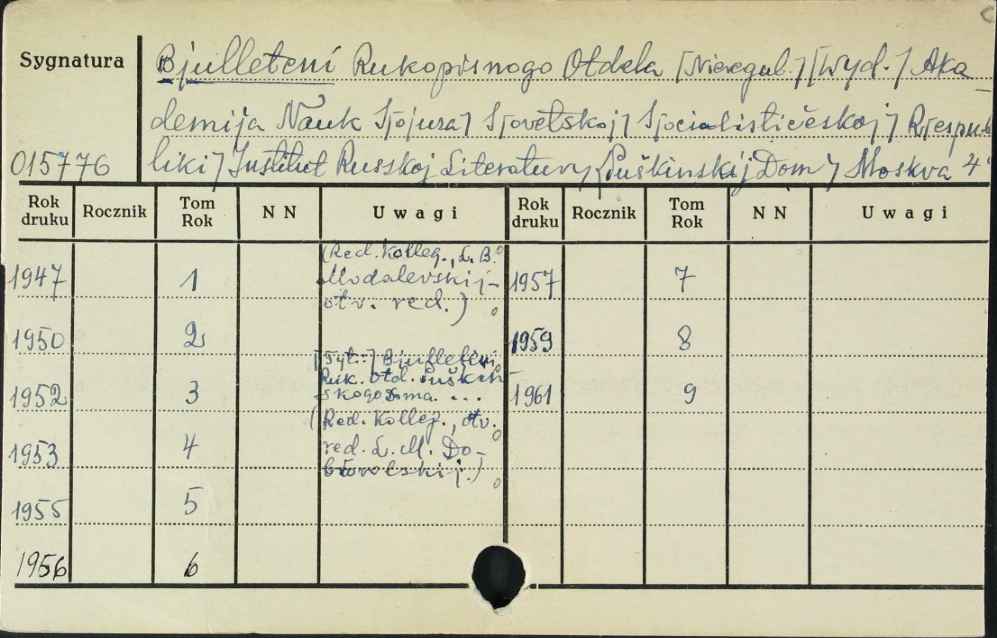 Sygnatura
Bjulleteni Rukopisnogo Otdela [Nieregul.] [Wyd.] Aka-
demija Nauk S[ojuza] S[ovetskoj] S[ocialističeskoj] R[espub-
015776
liki] Institut Russkoj Literatury (Puškinskij Dom) Moskva 4°
Rok druku Rocznik Tom Rok N N Uwagi Rok druku Rocznik Tom Rok N N Uwagi
1947 1 (Red. Kolleg., L. B. Modalevskij - otv. red.) 1957 7
1950 2 1959 8
[Tyt.:] Bjulleteni
Ruk. Otd. Puškin-
skogo Doma ...
1952 3 1961 9
(Red. Kolleg., otv.
1953 4 red. L. M. Do-
brovolskij.)
1955 5
1956 6